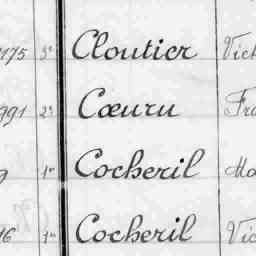 175 3e Cloutier Vict
991 2e Cœuru Fra
9 1er Cocheril Ma
16 1er Cocheril Vic